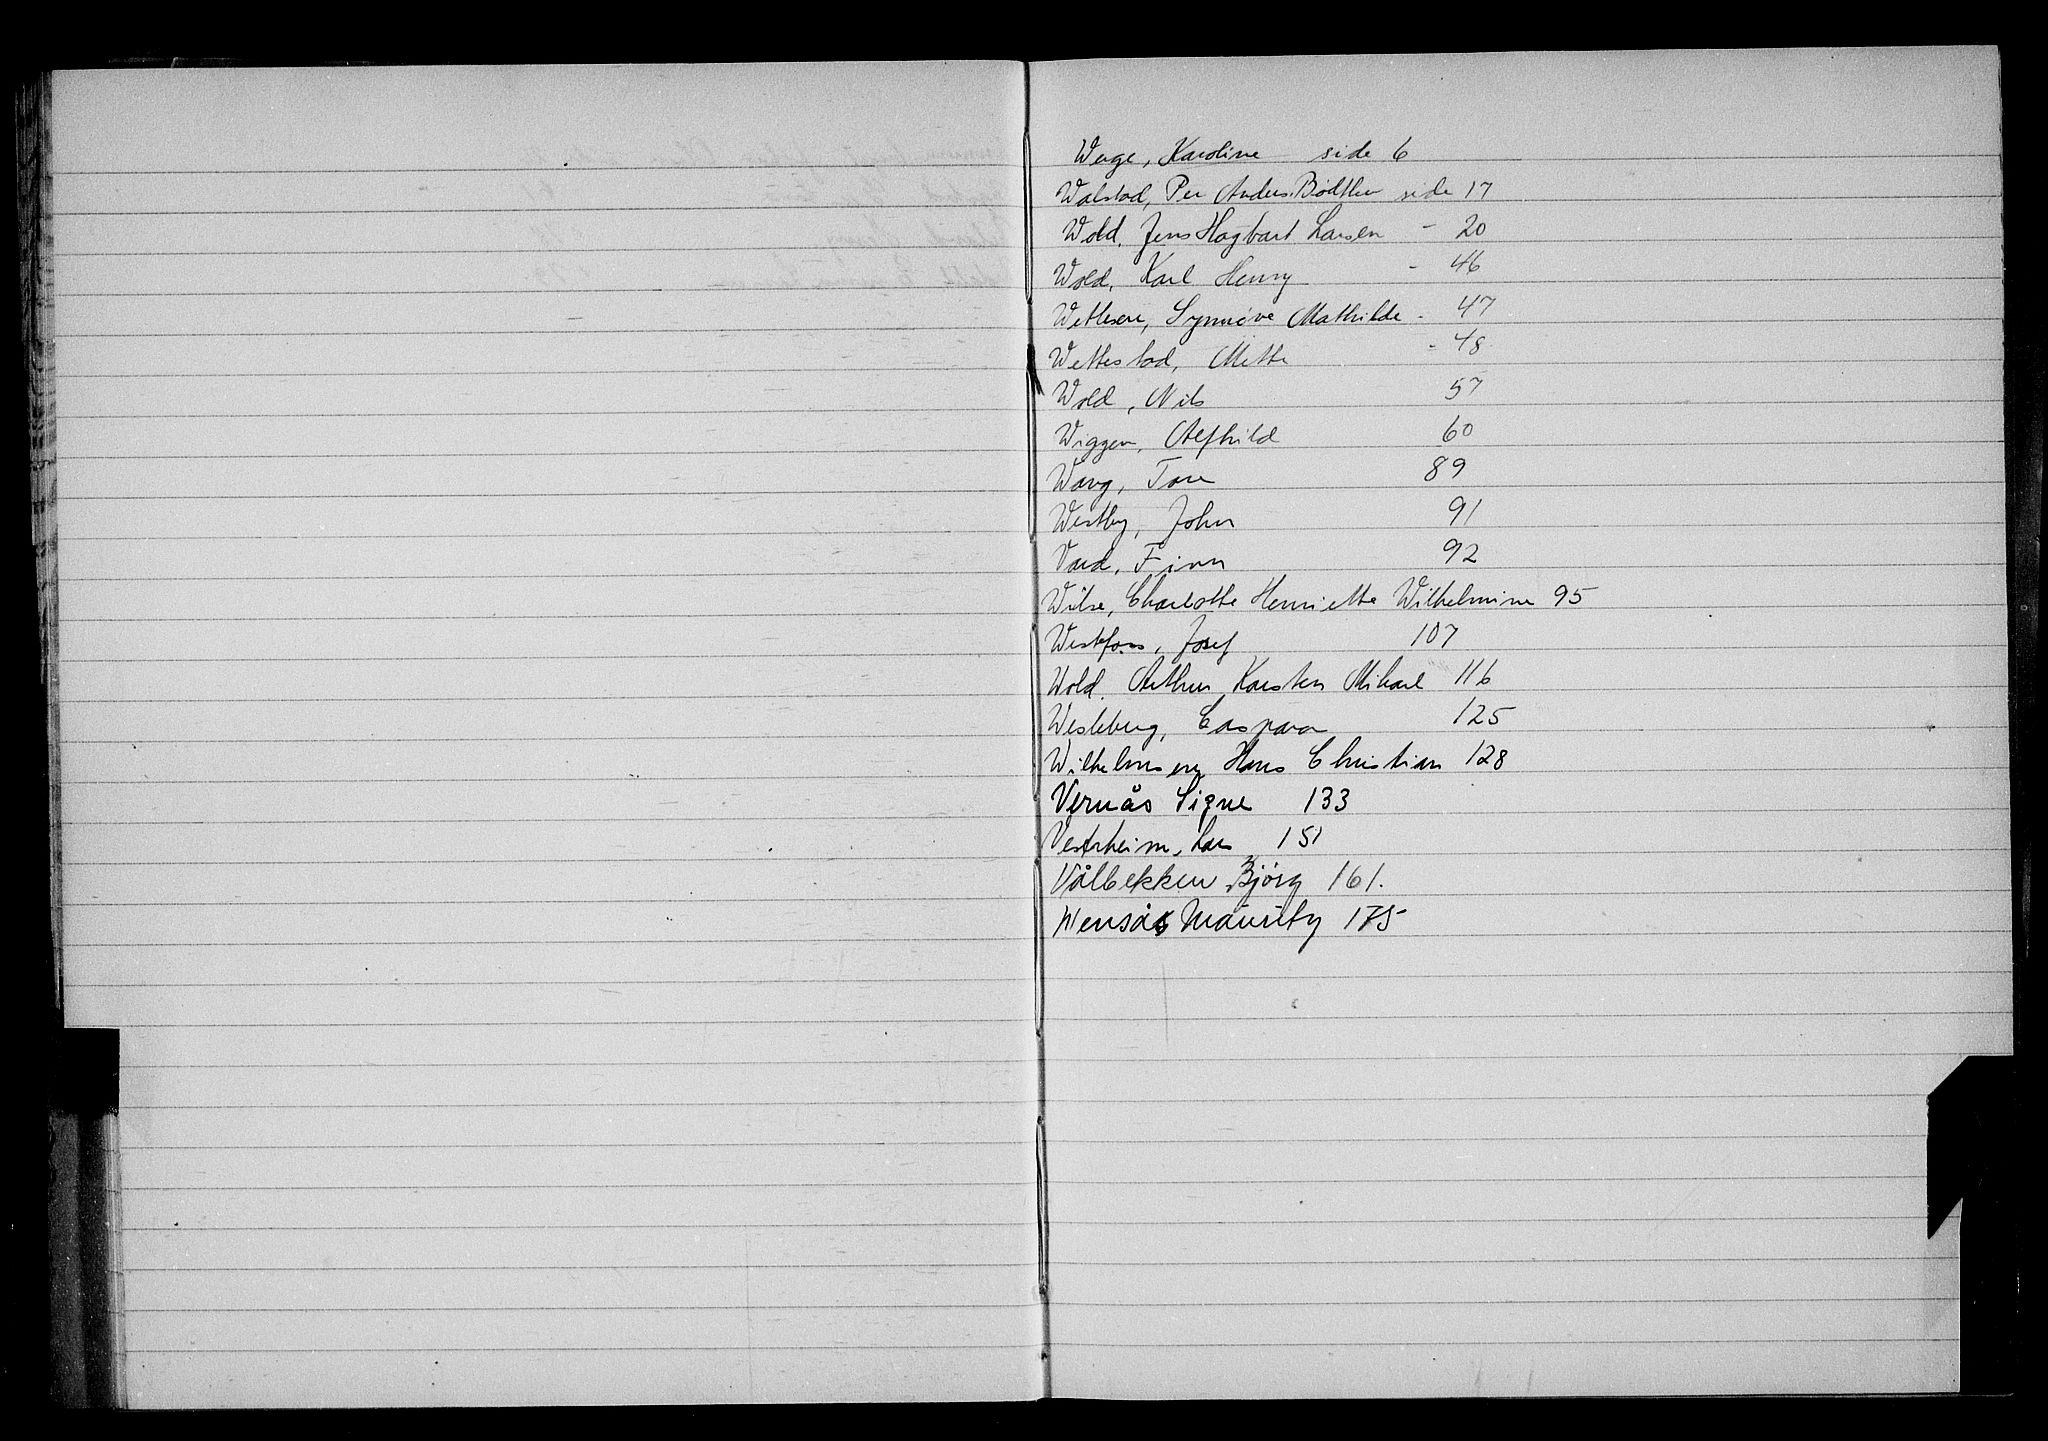 Wege, Karoline side 6
Walstad, Per Anders Bødtker side 17
Wold, Jens Hagbart Larsen - 20
Wold, Karl Henry - 46
Wetlesen, Synnøve Mathilde - 47
Wettestad, Mette - 48
Wold, Nils 57
Wiggen, Alfhild 60
Wang, Tore 89
Westby, John 91
Vard, Finn 92
Wilse, Charlotte Henriette Wilhelmine 95
Westfoss, Josef 107
Wold, Arthur Karsten Mikael 116
Wesleberg, Caspara 125
Wilhelmsen Hans Christian 128
Vernås Signe 133
Vestrheim, Lars 151
Vålbekken Bjørg 161.
Wensås Mauritz 175